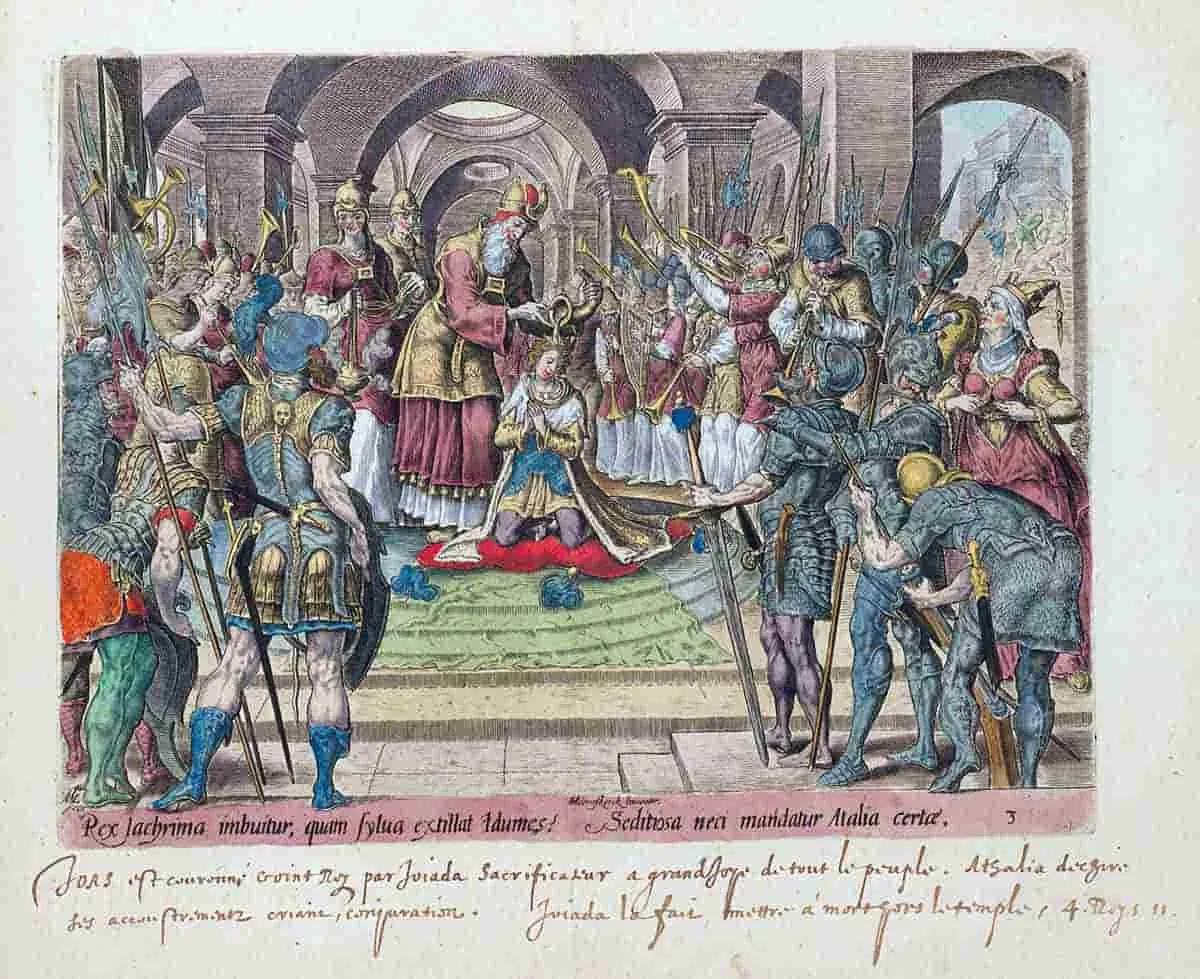 Rex lachrima imbuitur, quam ſylua extillat Idumes: Seditiosa neci mandatur Atalia certæ. 3
Joas est couronné & oint Roy par Joiada Sacrificateur a grand Joye de tout le peuple. Athalia dechire
ses accoustrementz criant, conjuration. Joiada la fait mettre à mort hors le temple, 4. Roys 11.